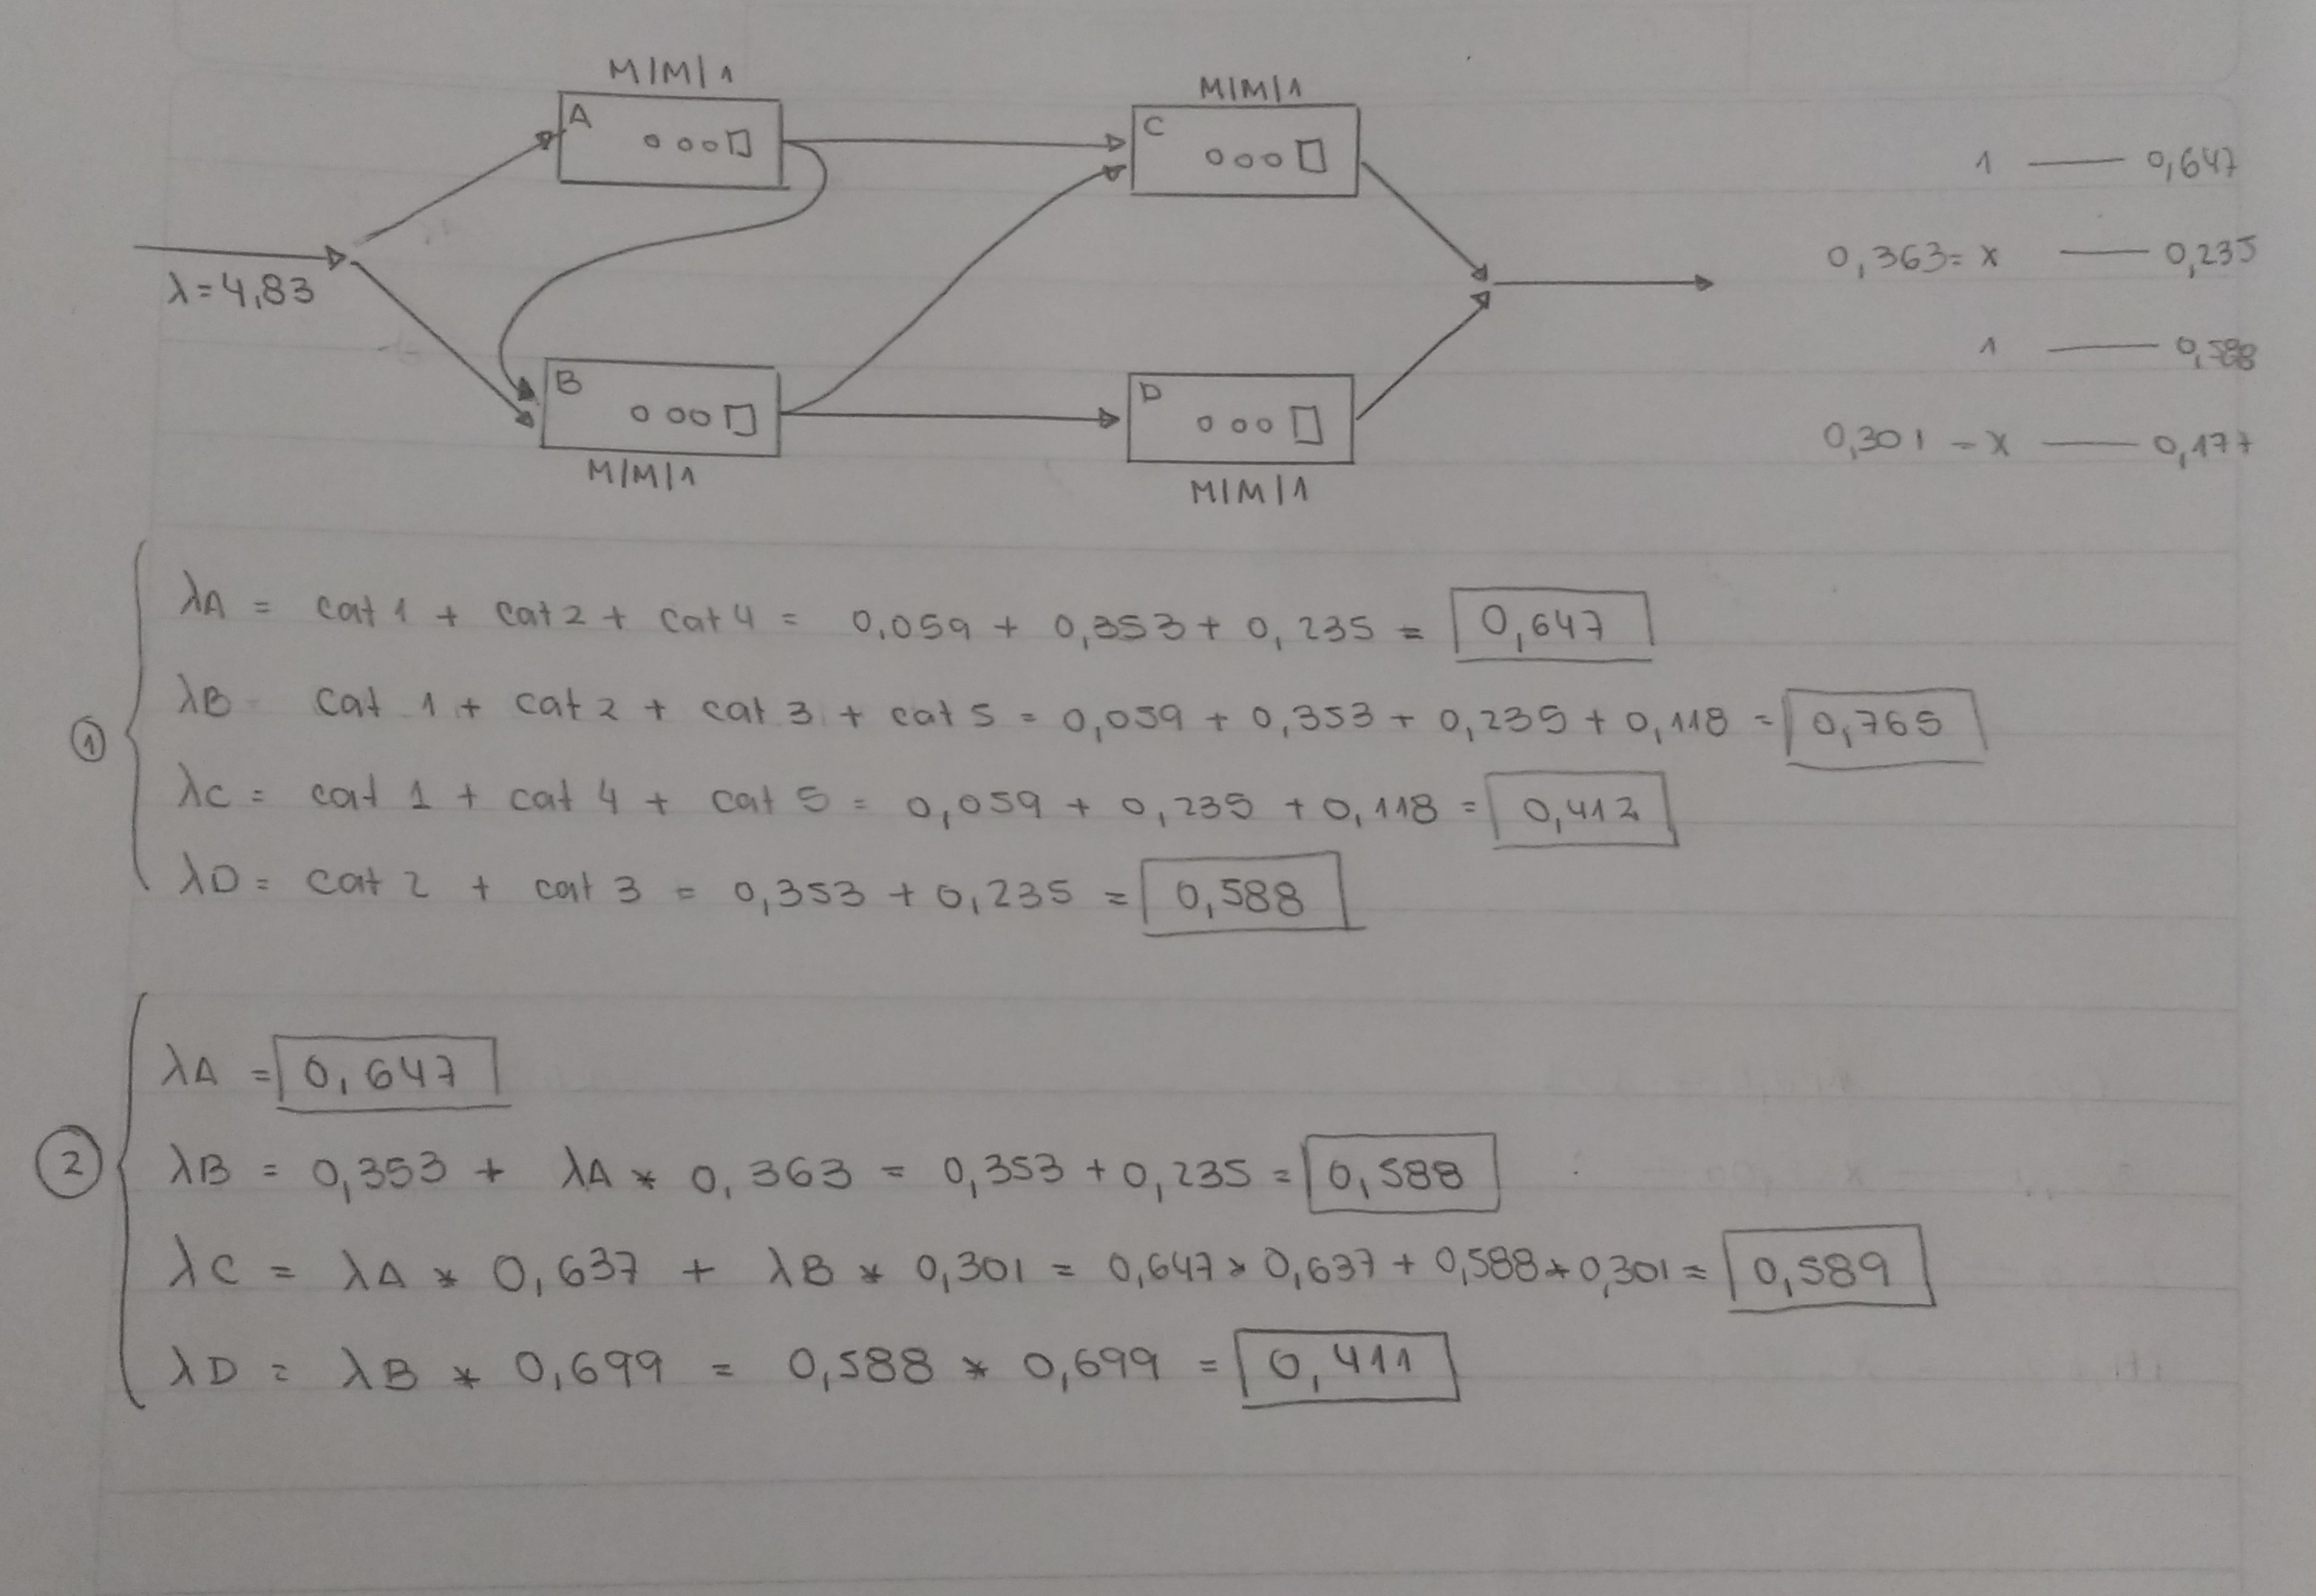 M/M/1
M/M/1
A
C
1 — 0,647
λ=4,83
0,363= x — 0,235
1 — 0,588
B
D
0,301 = x — 0,177
M/M/1
M/M/1
λA = cat 1 + cat 2 + cat 4 = 0,059 + 0,353 + 0,235 = 0,647
① λB = cat 1 + cat 2 + cat 3 + cat 5 = 0,059 + 0,353 + 0,235 + 0,118 = 0,765
λC = cat 1 + cat 4 + cat 5 = 0,059 + 0,235 + 0,118 = 0,412
λD = cat 2 + cat 3 = 0,353 + 0,235 = 0,588
λA = 0,647
② λB = 0,353 + λA * 0,363 = 0,353 + 0,235 = 0,588
λC = λA * 0,637 + λB * 0,301 = 0,647 * 0,637 + 0,588 * 0,301 = 0,589
λD = λB * 0,699 = 0,588 * 0,699 = 0,411